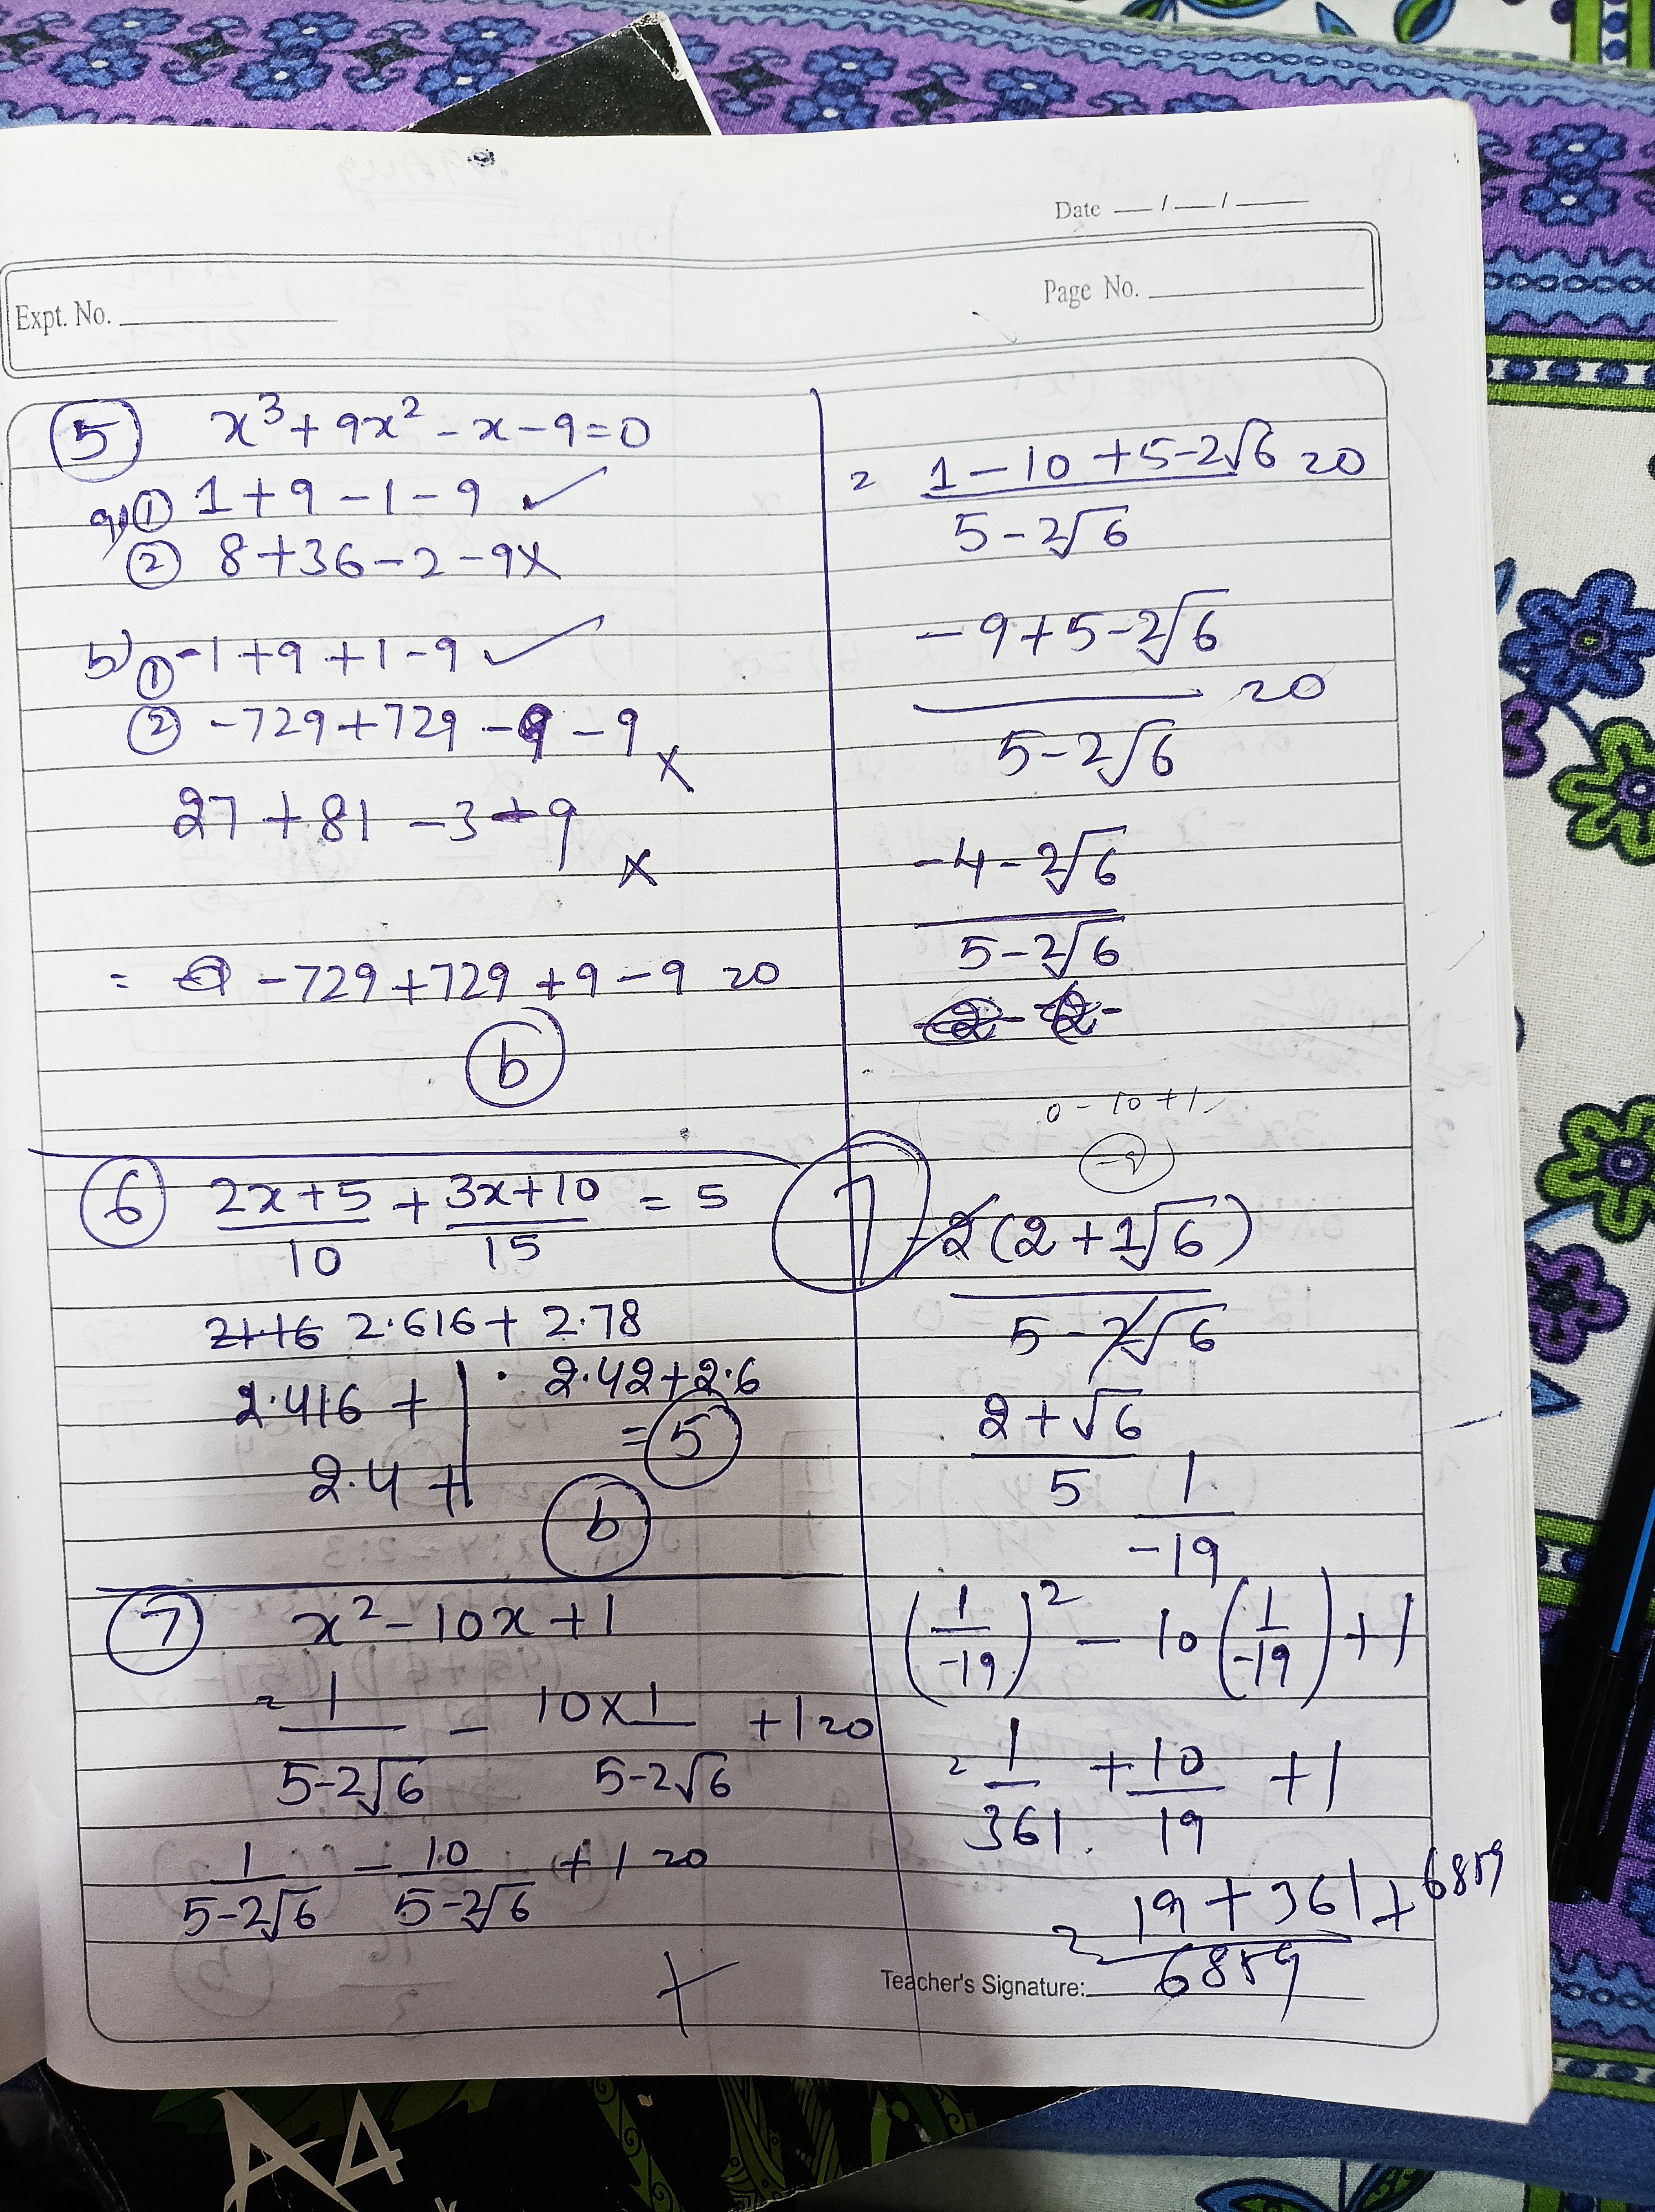 Date __/__/__
Page No.
Expt. No.
5 x³ + 9x² - x - 9 = 0
a) ① 1 + 9 - 1 - 9 ✓
② 8 + 36 - 2 - 9 ×
b) ① -1 + 9 + 1 - 9 ✓
② -729 + 729 - 9 - 9 ×
27 + 81 - 3 + 9 ×
= -729 + 729 + 9 - 9 = 0
b
6 (2x+5)/10 + (3x+10)/15 = 5
2.616 + 2.78
2.416 +
2.4 +
2.42 + 2.6
= 5
b
7 x² - 10x + 1
= 1/(5-2√6) - 10×1/(5-2√6) + 1 = 0
1/(5-2√6) - 10/(5-2√6) + 1 = 0
×
= (1 - 10 + 5 - 2√6)/(5-2√6) = 0
(-9 + 5 - 2√6)/(5-2√6) = 0
(-4 - 2√6)/(5-2√6)
0 - 10 + 1
-9
7 -2(2 + 1√6)/(5-2√6)
(2 + √6)/5
1/-19
(1/-19)² - 10(1/-19) + 1
= 1/361 + 10/19 + 1
= (19 + 361 + 6859)/6859
Teacher's Signature:
A4